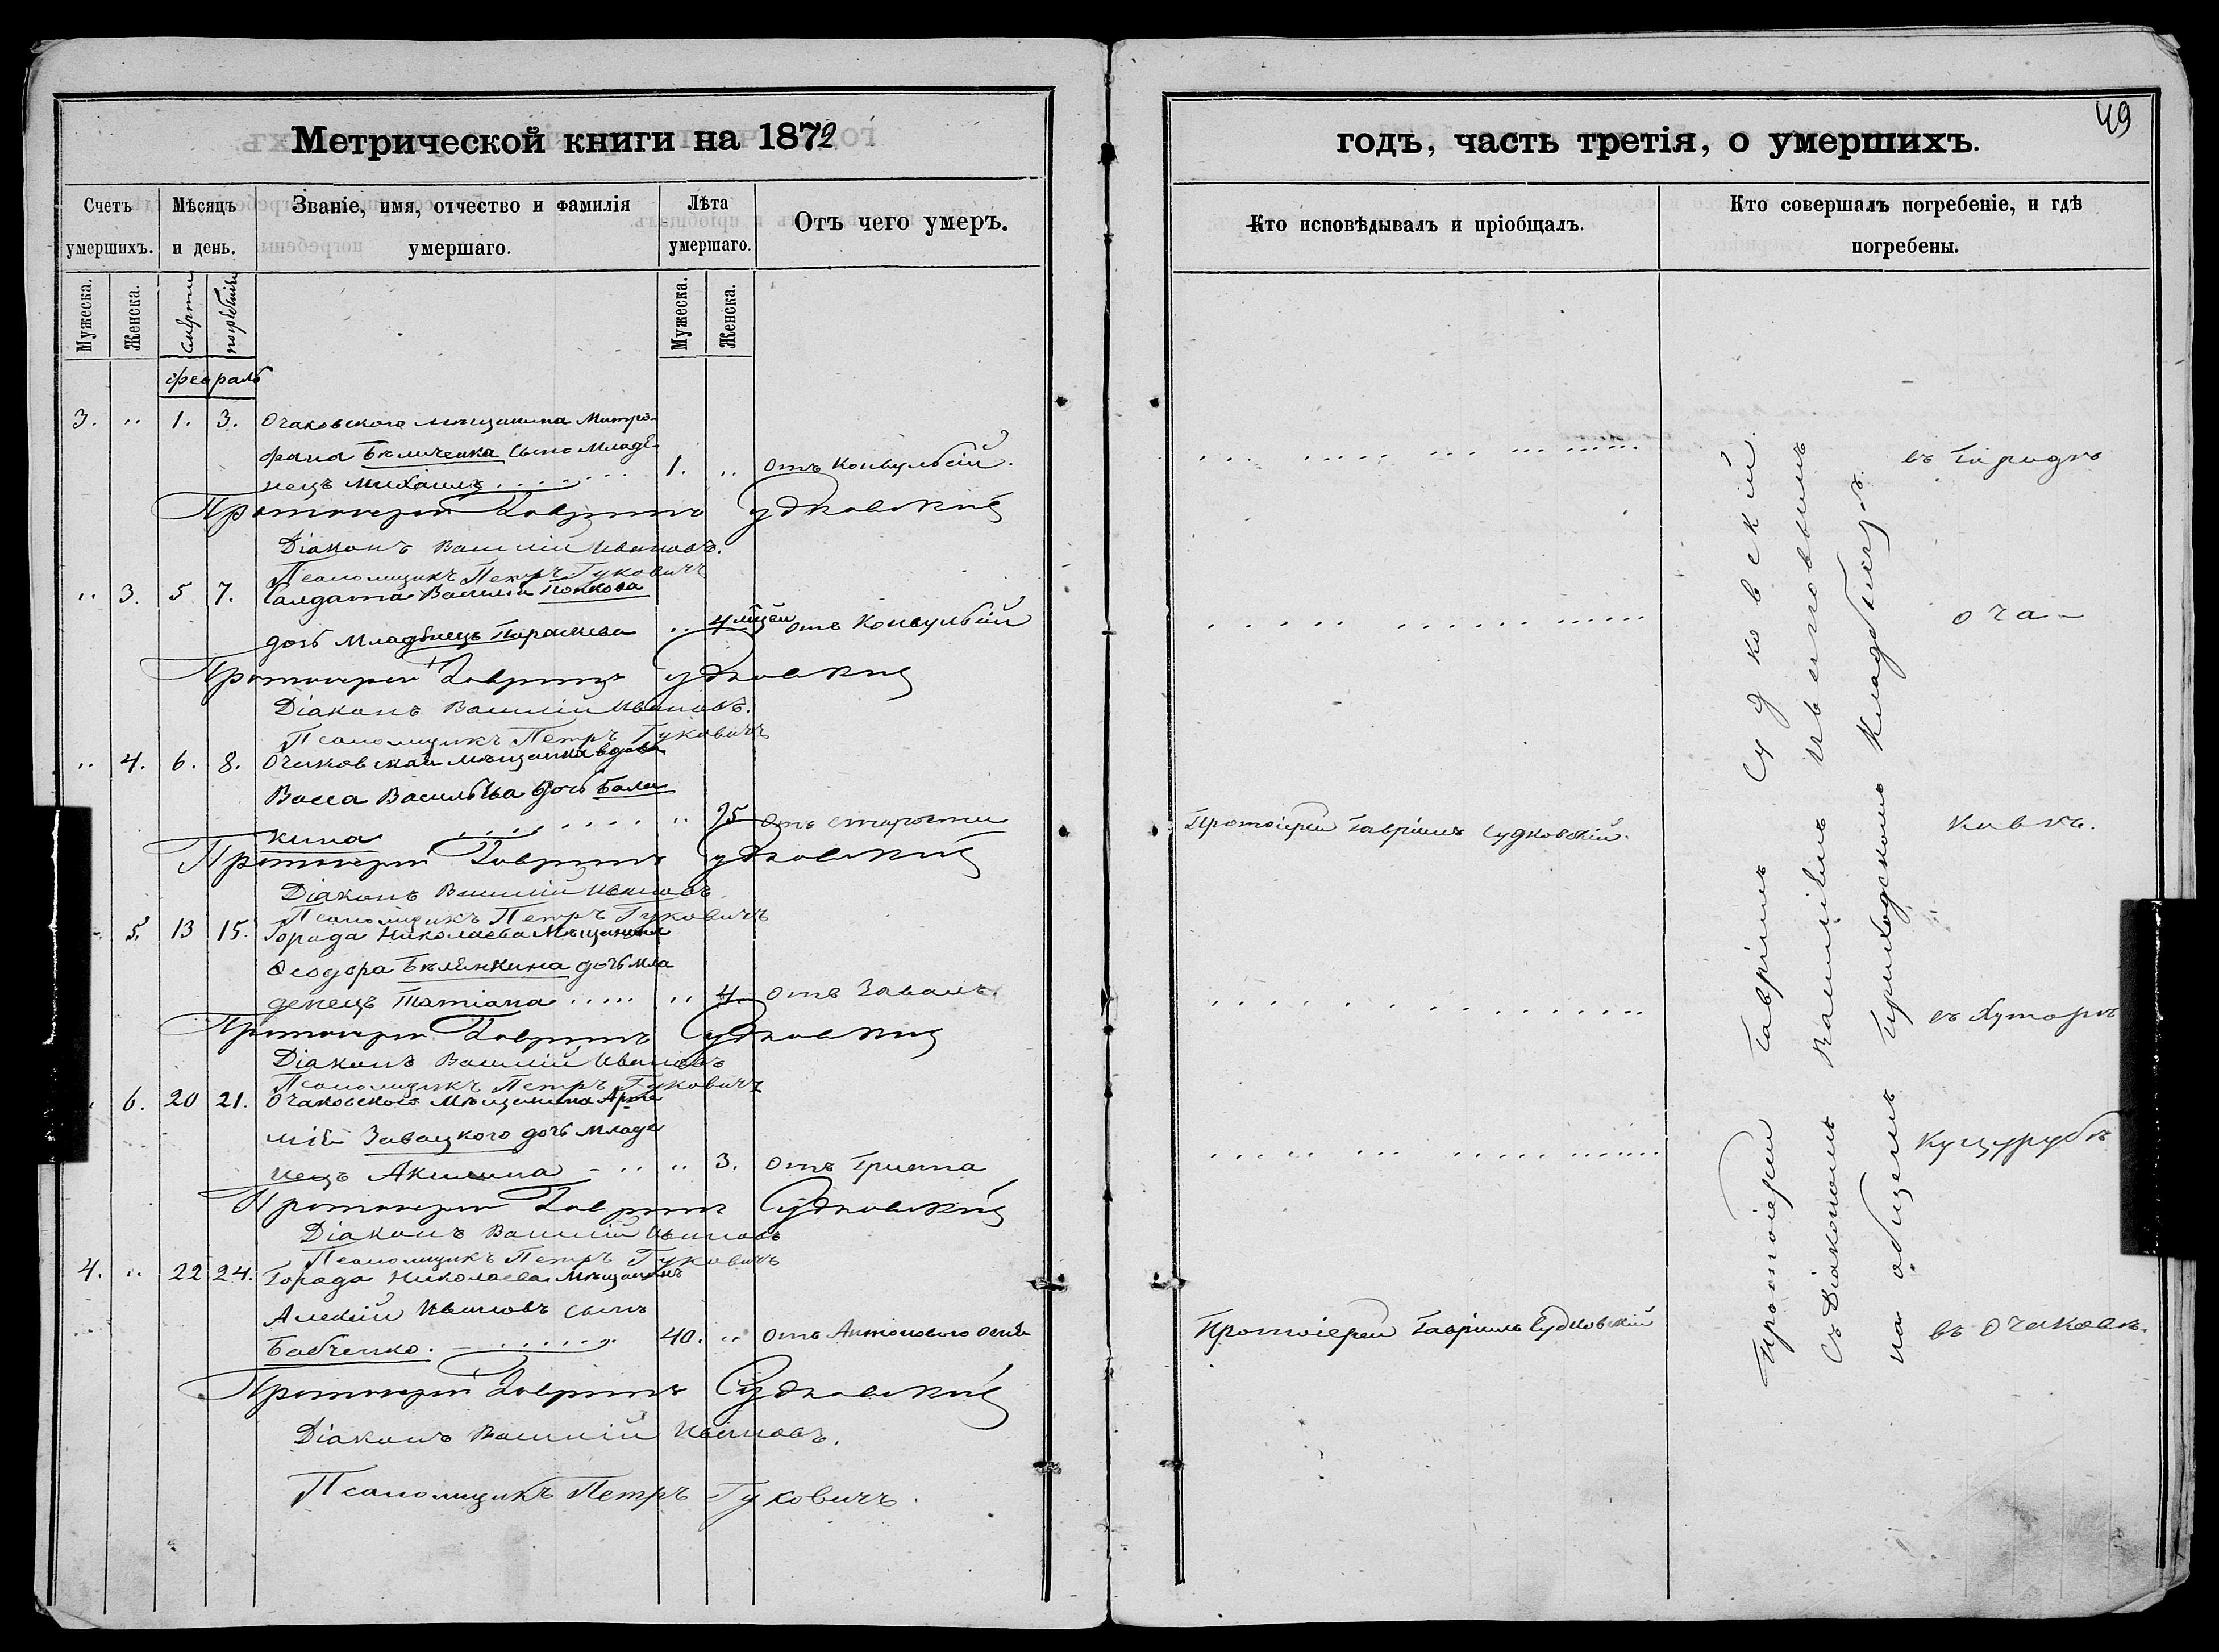 Метрической книги на 1872
Счетъ умершихъ.
Мѣсяцъ и день.
Званіе, имя, отчество и фамилія умершаго.
Лѣта умершаго.
Отъ чего умеръ.
Мужеска.
Женска.
смерти
погребенія
Мужеска.
Женска.
февраль
3. „ 1. 3. Очаковскаго мѣщанина Митро-
фана Бѣличенка сынъ младе-
нецъ Михаилъ . . . . . . 1. „ отъ Конвульсій.
Протоіерей Гавріилъ Судковскій
Діаконъ Василій Ивановъ.
Псаломщикъ Петръ Гуковичъ
„ 3. 5 7. Салдата Василія Попкова
дочь младенецъ Параскева „ 4 мѣсец отъ Конвульсій
Протоіерей Гавріилъ Судковскій
Діаконъ Василій Ивановъ.
Псаломщикъ Петръ Гуковичъ
„ 4. 6. 8. Очаковская мѣщанка вдова
Васса Васильева дочь Бала
кина . . . . . . . „ 95 отъ старости
Протоіерей Гавріилъ Судковскій
Діаконъ Василій Ивановъ
Псаломщикъ Петръ Гуковичъ
5. 13 15. Города Николаева Мѣщанина
Ѳеодора Бѣленкина дочь мла
денецъ Татіана . . . . . „ 4. отъ Завалъ.
Протоіерей Гавріилъ Судковскій
Діаконъ Василій Ивановъ
Псаломщикъ Петръ Гуковичъ
6. 20 21. Очаковскаго Мѣщанина Арте
мія Завацкого дочь младе
нецъ Акилина - . . „ 3. отъ Грипа
Протоіерей Гавріилъ Судковскій
Діаконъ Василій Ивановъ
Псаломщикъ Петръ Гуковичъ
4. „ 22 24. Города Николаева Мѣщанинъ
Алексій Ивановъ сынъ
Бабченко. . . . . . . 40. „ отъ Антонового огня
Протоіерей Гавріилъ Судковскій
Діаконъ Василій Ивановъ.
Псаломщикъ Петръ Гуковичъ.
49
годъ, часть третія, о умершихъ.
Кто исповѣдывалъ и пріобщалъ.
Кто совершалъ погребеніе, и гдѣ погребены.
Протоіерей Гавріилъ Судковскій.
Протоіерей Гавріилъ Судковскій
Протоіерей Гавріилъ Судковскій
съ Діакономъ Василіемъ Ивановымъ
на общемъ приходскомъ кладбищѣ.
въ Городѣ
Оча-
ковѣ.
въ Хуторѣ
Куцурубѣ
въ Очаковѣ.